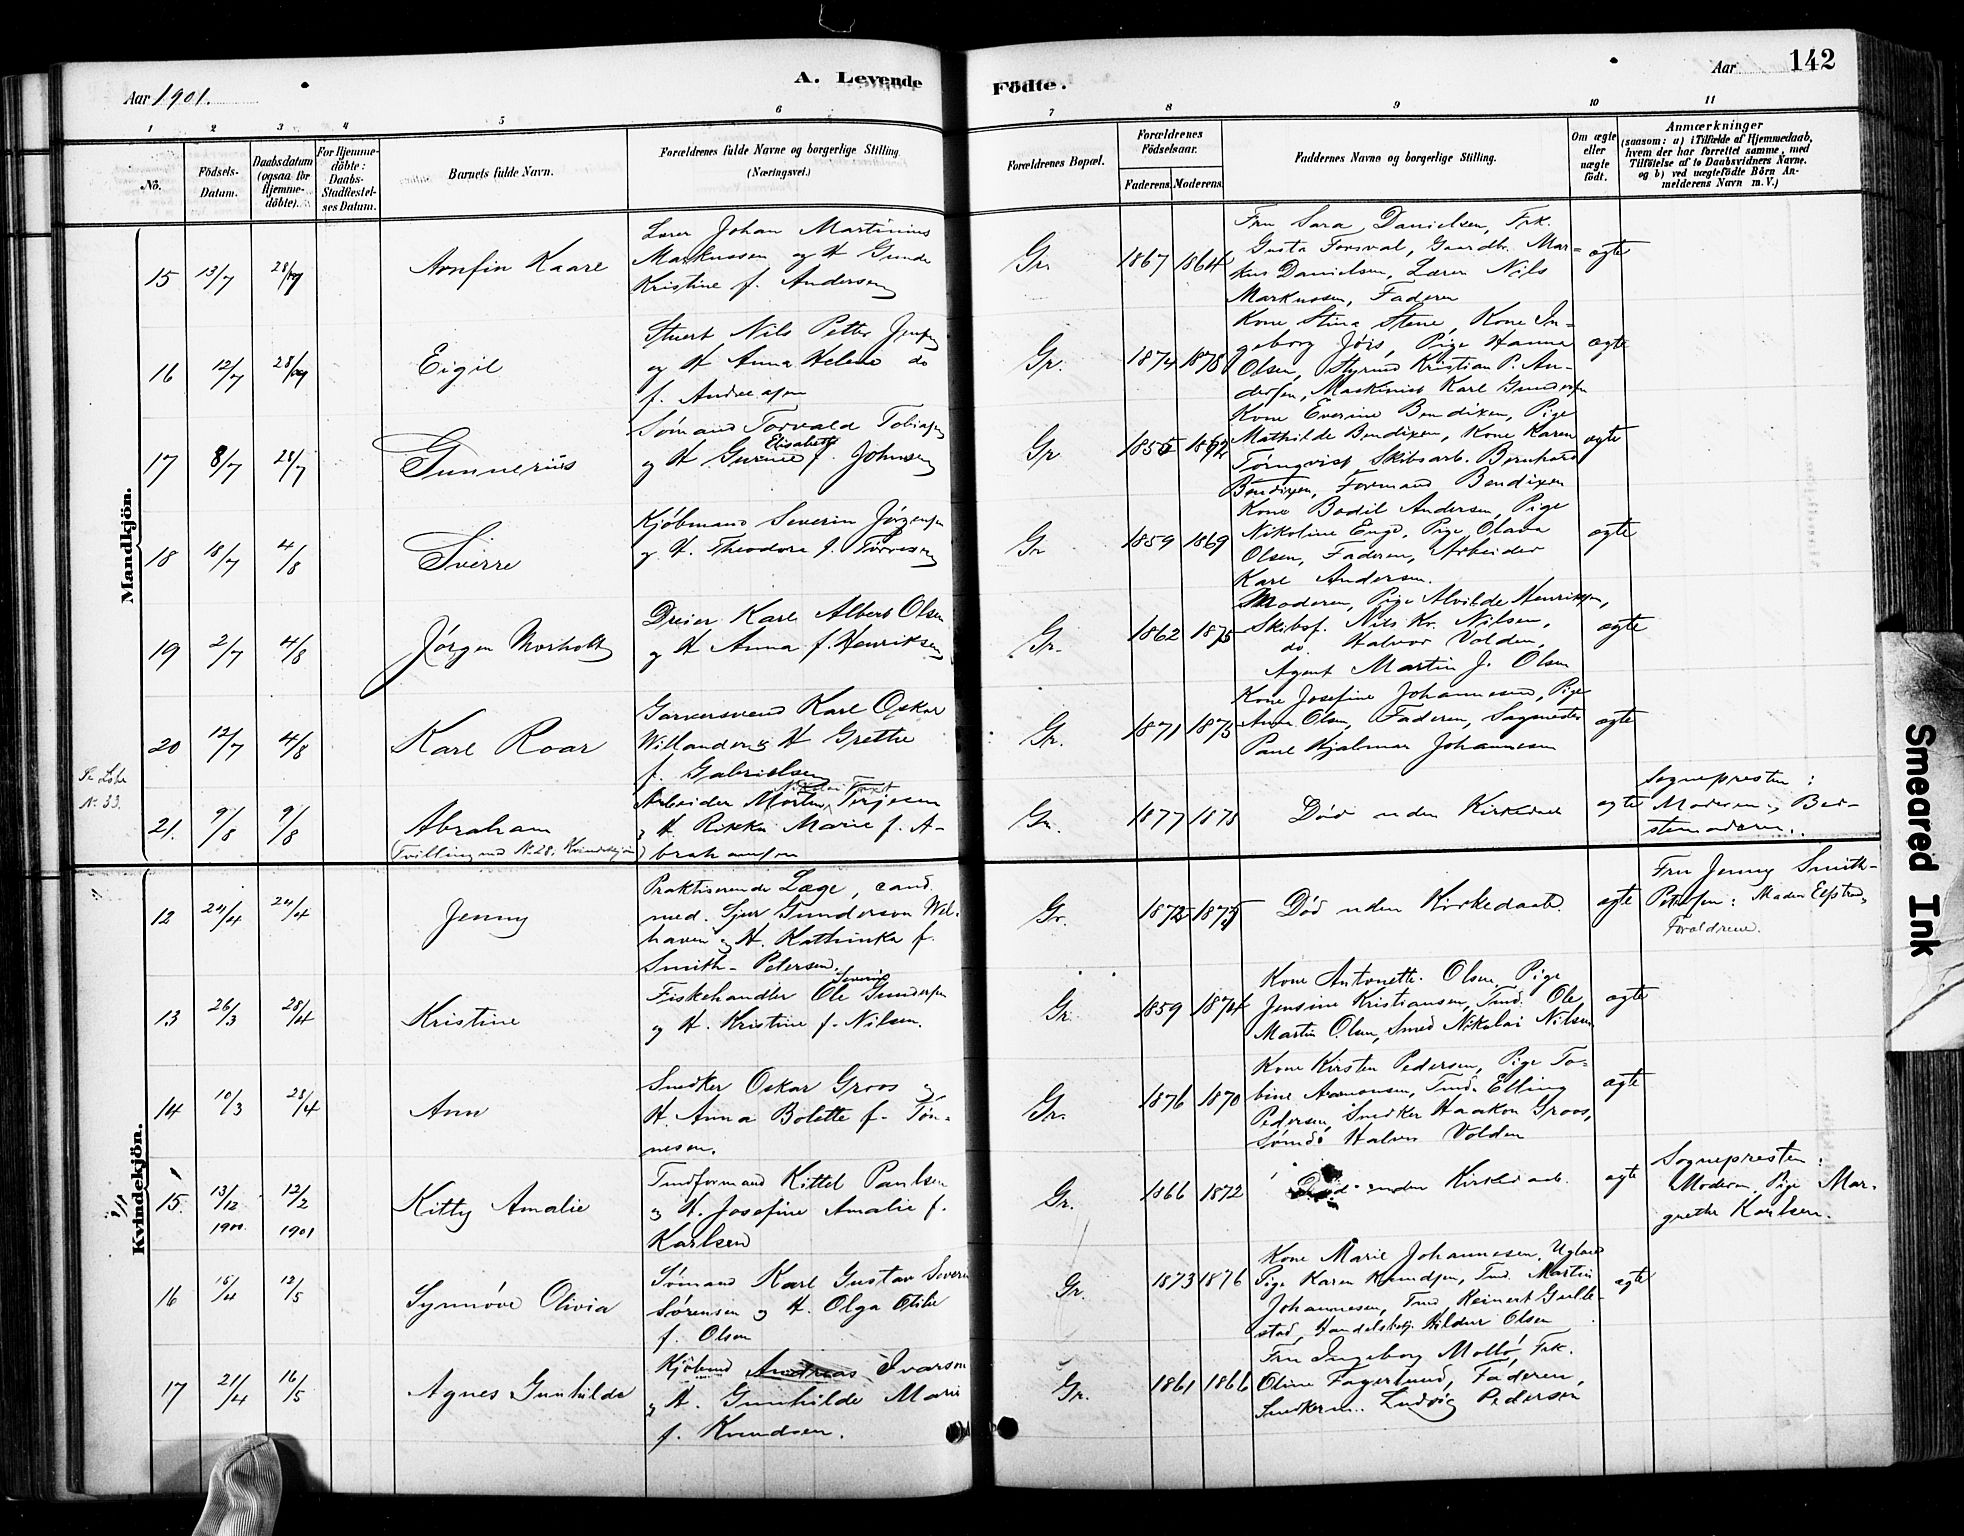 Aar 1901.
A. Levende
Födte.
Aar
142
1 2 3 4 5 6
7 8 9 10 11
No.
Födsels-
Datum.
Daabsdatum
(ogsaa for
Hjemme-
döbte).
For Hjemme-
döbte:
Daabs-
Stadfæstel-
ses Datum.
Barnets fulde Navn.
Forældrenes fulde Navne og borgerlige Stilling
(Næringsvei.)
Forældrenes Bopæl.
Forældrenes
Födselsaar.
Faderens.
Moderens.
Faddernes Navne og borgerlige Stilling.
Om ægte
eller
uægte
født.
Anmærkninger
(saasom: a) i Tilfælde af Hjemmedaab,
hvem der har forrettet samme, med
Tilföielse af to Daabsvidners Navne.
og b) ved uægtefödte Börn An-
melderens Navn m. V.)
Mandkjön.
15 13/7 28/7
Arnfin Kaare
Lærer Johan Martinius
Markussen og H Gunda
Kristine f. Andersen
Gr. 1867 1864
Fru Sara Danielsen, Frk.
Gusta Forsval, Gaardbr. Mar=
kus Danielsen, Lærer Nils
Markussen, Faderen
ægte
16 12/7 28/7
Eigil
Stuert Nils Petter Jensen
og H Anna Helene do
f. Andreassen
Gr. 1874 1878
Kone Stina Stene, Kone In=
geborg Jørs, Pige Hanna
Olsen, Styrmd Kristian P. An=
dersen, Maskinist Karl Gundersen
ægte
17 8/7 28/7
Gunnerius
Sømand Torvald Tobiassen
og H Gurine Elisabeth f. Johnsen
Gr 1855 1862
Kone Everine Bendixen, Pige
Mathilde Bendixen, Kone Karen
Tørnqvist Skibsarb. Bernhard
Bendixen, Formand Bendixen
ægte
18 18/7 4/8
Sverre
Kjøbmand Severin Jørgensen
og H. Theodora f. Torresen
Gr 1859 1869
Kone Bodil Andersen, Pige
Nikoline Enge, Pige Olava
Olsen, Faderen, Arbeider
Karl Andersen.
ægte
19 2/7 4/8
Jørgen Morholt
Dreier Karl Albert Olsen
og H Anna f. Henriksen
Gr. 1862 1875
Moderen, Pige Alvilde Henriksen,
Skibsf. Nils Kr. Nilsen,
do Halvor Volden,
Agent Martin J. Olsen
ægte
20 12/7 4/8
Karl Roar
Garversvend Karl Oskar
Willander og H Grethe
f. Gabrielsen
Gr. 1871 1873
Kone Josefine Johannesen, Pige
Anna Olsen, Faderen, Sagmester
Paul Hjalmar Johannesen
ægte
Se Liste
No 33.
21. 9/8 9/8
Abraham
Tvilling med No 28. Kvindekjøn
Arbeider Morten Terjesen
og H Rikka Marie f. A-
brahamsen
Gr. 1877 1873
Død uden Kirkedaab
ægte
Sognepresten:
Moderen og Bed-
stemoderen.
Kvindekjön.
12 24/4 24/4
Jenny
Praktiserende Læge, cand.
med. Sjur Gunderson Wel-
haven og H. Kathinka f.
Smith-Petersen.
Gr. 1872 1875
Død uden Kirkedaab.
ægte
Fru Jenny Smith-
Petersen: Madam Elfstrøm,
Forældrene.
13 26/3 28/4
Kristine
Fiskehandler Ole Severin Gundersen
og H. Kristine f. Nilsen.
Gr. 1859 1874
Kone Antonette Olsen, Pige
Jensine Kristiansen, Tmd. Ole
Martin Olsen, Smed Nikolai Nilsen
ægte
14 10/3 28/4
Ann
Snedker Oskar Groos og
H. Anna Bolette f. Tøn-
nesen.
Gr. 1876 1870
Kone Kirsten Pedersen, Pige To-
bine Aamonsen, Tmd. Elling
Pedersen, Snedker Haakon Groos,
Sømd Halvor Volden
ægte
15. 13/12 1900 12/2 1901
Kitty Amalie
Tmdformand Kittel Paulsen
og H. Josefine Amalie f.
Karlsen
Gr. 1866 1872
Død uden Kirkedaab.
ægte
Sognepresten:
Moderen, Pige Mar-
grethe Karlsen.
16 15/4 12/5
Synnøve Olivia
Sømand Karl Gustav Severin
Sørensen og H. Olga Otilie
f. Olsen
Gr. 1873 1876
Kone Marie Johannesen, Ugland
Pige Karen Knudsen, Tmd. Martin
Johannesen, Tmd Reinert Gulle-
stad, Handelsbetj. Hildur Olsen
ægte
17 21/4 16/5
Agnes Gunhilde
Kjøbmd Andreas Ivarson
og H. Gunhilde Marie
f. Knudsen.
Gr. 1861 1866
Fru Ingeborg Mollø, Frk.
Oline Fagerlund, Faderen,
Snedkerm. Ludvig Pedersen
Smeared Ink